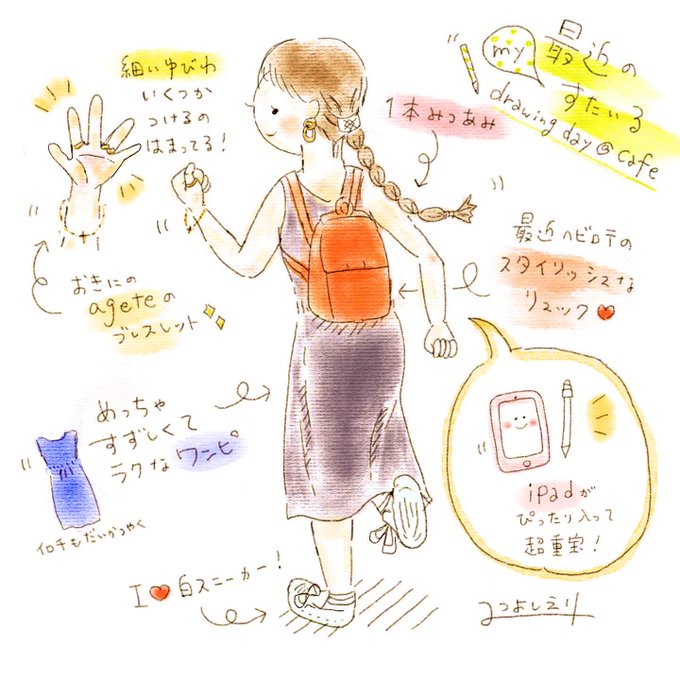 my
最近の
すたいる
drawing day @ cafe
細いゆびわ
いくつか
つけるの
はまってる!
1本みつあみ
おきにの
ageteの
ブレスレット
最近ヘビロテの
スタイリッシュな
リュック
めっちゃ
すずしくて
ラクなワンピ
イロチもだいかつやく
iPadが
ぴったり入って
超重宝!
I ♥ 白スニーカー!
みつよしえり